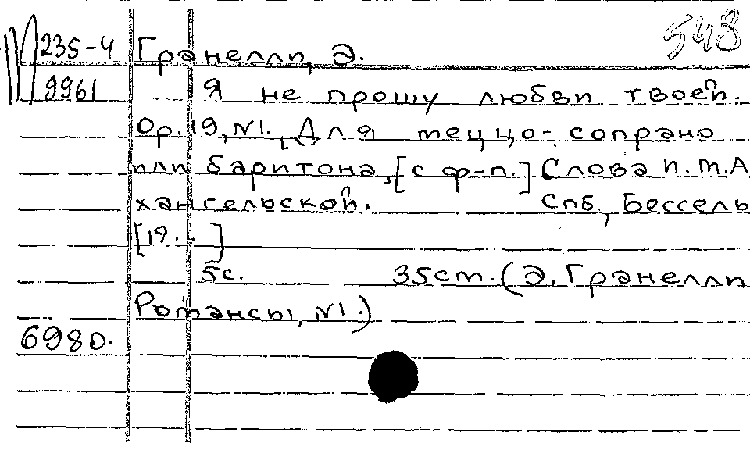 М 235-4 Гранелли, Э. 548
9961 Я не прошу любви твоей.
Ор. 19, №1., Для меццо-сопрано
или баритона, [с ф-п.] Слова П.М.А
хангельской. Спб, Бессель
[19.. ]
5с. 35см. (Э. Гранелли
Романсы, №1.)
6980.